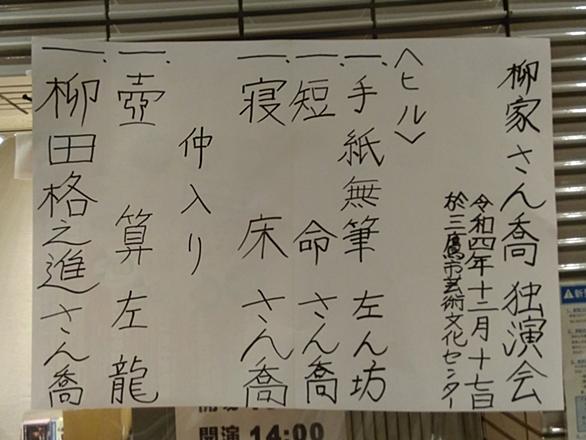 柳家さん喬 独演会
令和四年十二月十七日
於三鷹市芸術文化センター
〈ヒル〉
一、手紙無筆 左ん坊
一、短命 さん喬
一、寝床 さん喬
仲入り
一、壺算 左龍
一、柳田格之進 さん喬
開演 14:00